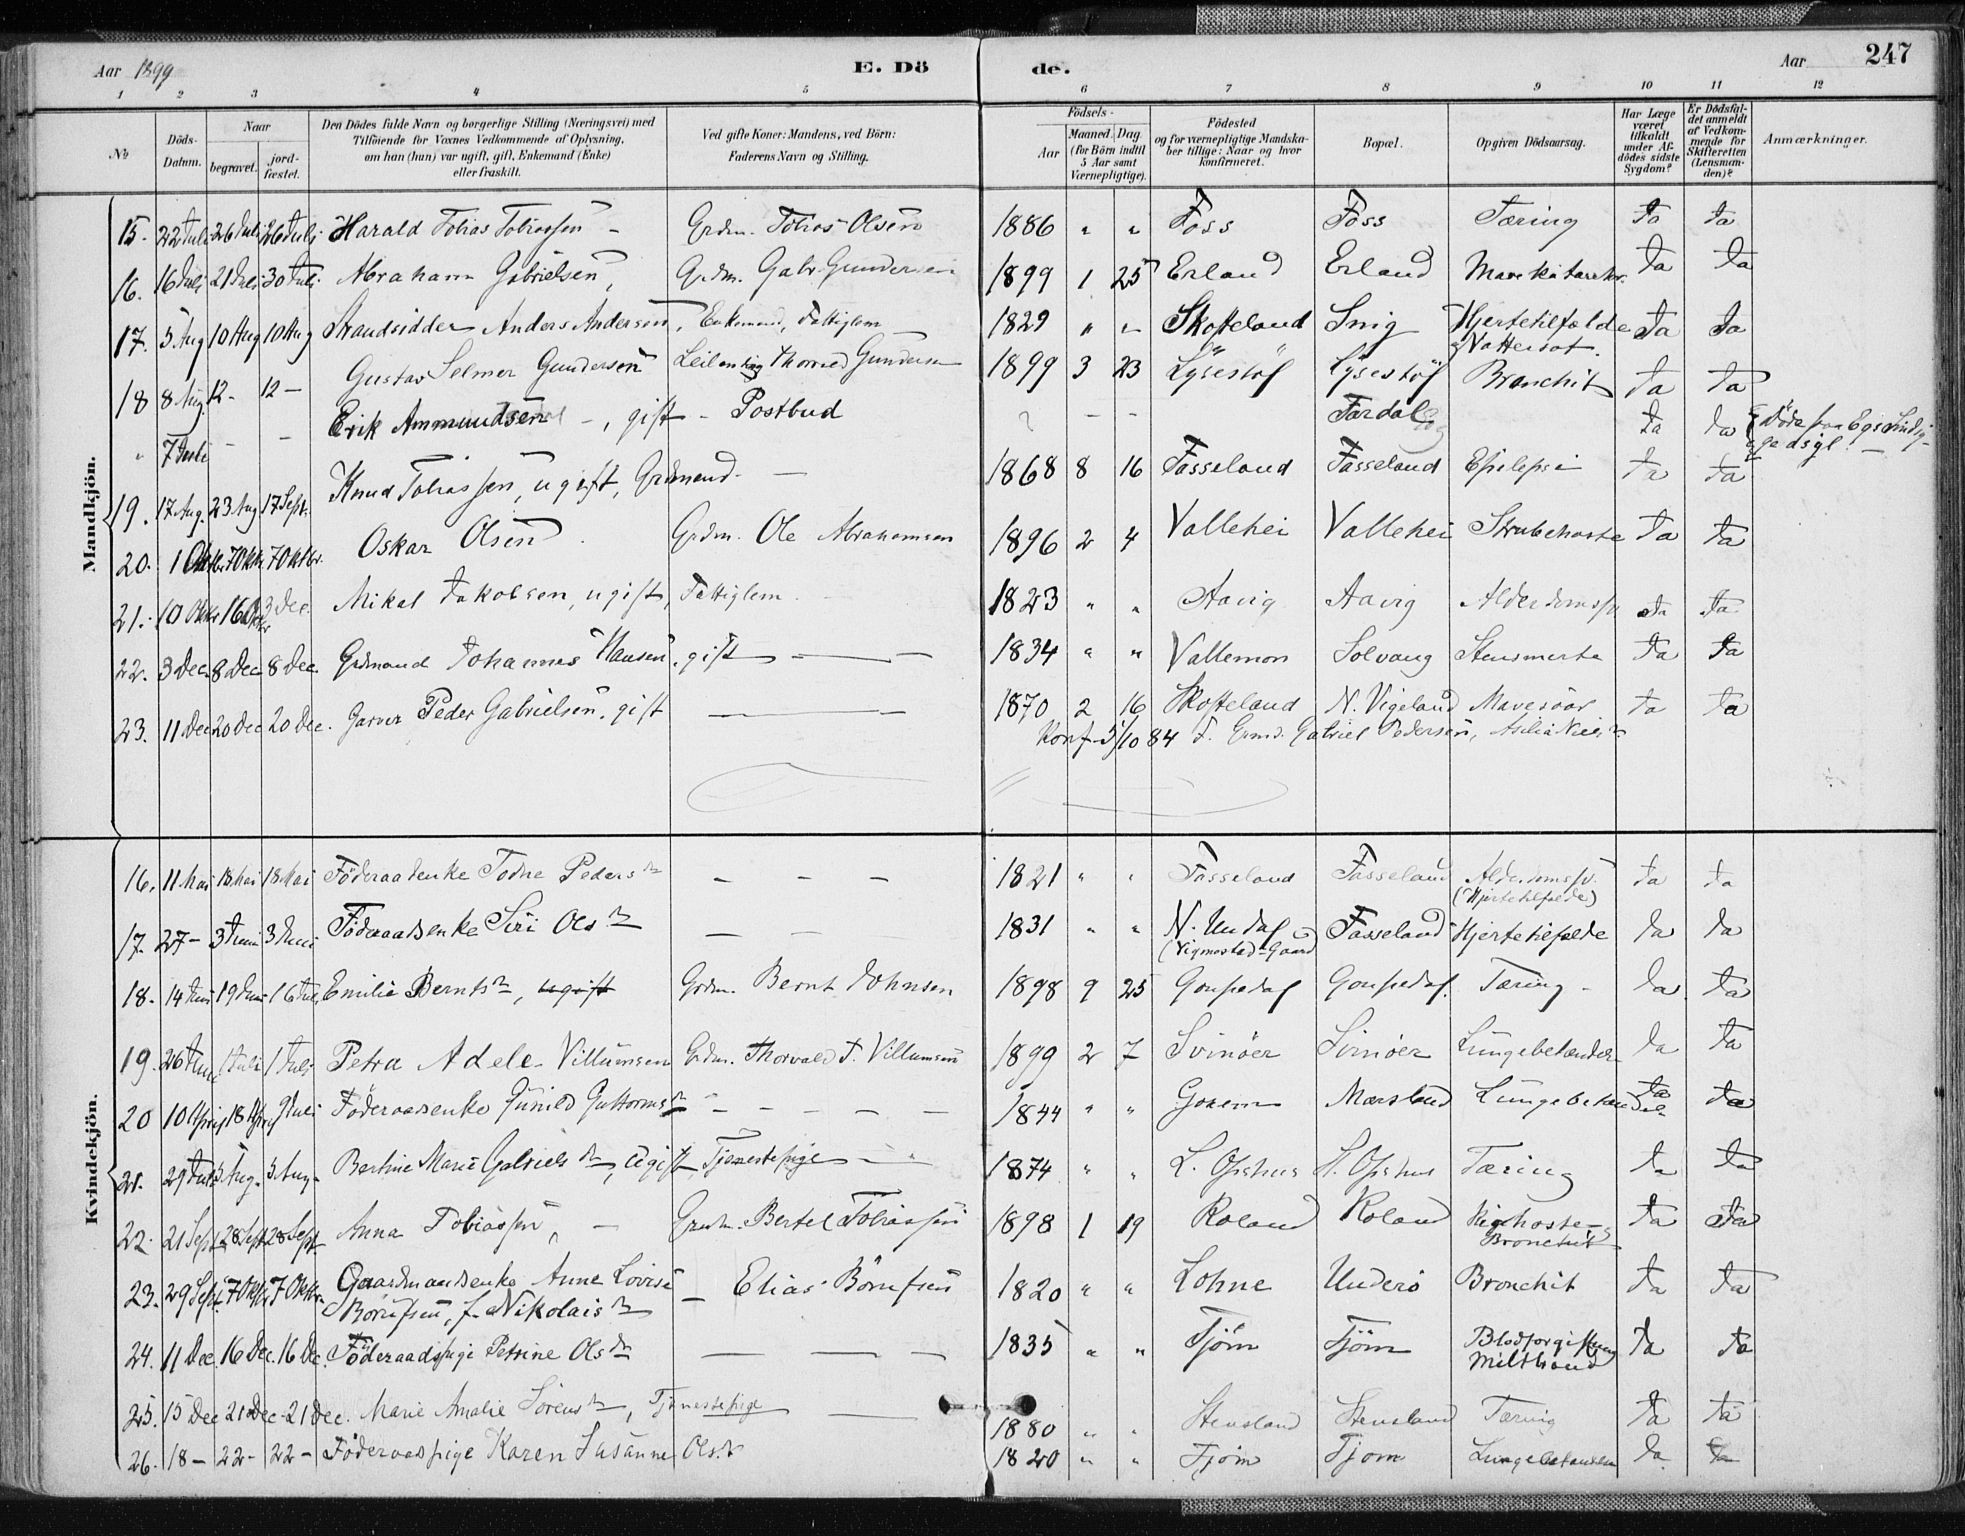 Aar 1899 E. Dö de. Aar 247
1 2 3 4 5 6 7 8 9 10 11 12
№ Döds-Datum. Naar begravet. jord-fæstet. Den Dödes fulde Navn og borgerlige Stilling (Næringsvei) med Tilföiende for Voxnes Vedkommende af Oplysning, om han (hun) var ugift, gift, Enkemand (Enke) eller fraskilt. Ved gifte Koner: Mandens, ved Börn: Faderens Navn og Stilling. Födsels- Aar Maaned. Dag. (for Börn indtil 5 Aar samt Værnepligtige). Födested og for værnepligtige Mandskaber tillige: Naar og hvor konfirmeret. Bopæl. Opgiven Dödsaarsag. Har Læge været tilkaldt under Afdödes sidste Sygdom? Er Dödsfaldet anmeldt af Vedkommende for Skifteretten (Lensmanden)? Anmærkninger.
Mandkjön.
15. 22 Juli 26 Juli 26 Juli Harald Tobias Tobiassen – Grdm. Tobias Olsen 1886 " " Foss Foss Tæring Ja Ja
16. 16 Juli 21 Juli 30 Juli Abraham Gabrielsen, Grdm. Gabr. Gundersen 1899 1 25 Erland Erland Ja Ja
17. 5 Aug 10 Aug 10 Aug Strandsidder Anders Andersen, Enkemand, Fattiglem 1829 " " Skofteland Snig Hjertetilfælde & Vattersot. Ja Ja
18 8 Aug. 12 – 12 – Gustav Selmer Gundersen Leilending Thorvald Gundersen 1899 3 23 Bronchit Ja Ja
" 7 Juli – – Erik Ammundsen –, gift – Postbud ? – – Tardal Ja Ja Döde paa Egs Sindsygeasyl.
19. 17 Aug. 23 Aug 17 Sept. Knud Tobiassen, ugift, Grdmand. – 1868 8 16 Fasseland Fasseland Epilepsi Ja Ja
20. 1 Oktbr 7 Oktbr 7 Oktbr. Oskar Olsen Grdm. Ole Abrahamsen 1896 2 4 Vallehei Vallehei Strubehoste Ja Ja
21. 10 Oktbr 16 Oktbr 3 Dec. Mikal Jakobsen, ugift, Fattiglem 1823 " " Aavig Aavig Alderdomssv. Ja Ja
22. 3 Dec 8 Dec 8 Dec. Grdmand Johannes Hansen, gift – – – 1834 " " Vallemon Solvang Stensmerte Ja Ja
23. 11 Dec 20 Dec 20 Dec. Garver Peder Gabrielsen, gift – – 1870 2 16 Skofteland N. Vigeland Mavesaar Ja Ja
Konf. 5/10 84 F. Grmd. Gabriel Pedersen,
Kvindekjön.
16. 11 Mai 18 Mai 18 Mai Föderaadsenke Todne Pedersdr – – – 1821 " " Fasseland Fasseland Alderdomssv. (Hjertetilfælde) Ja Ja
17. 27 – 3 Juni 3 Juni Föderaadsenke Siri Olsdr – – 1831 " " N. Undal (Vigmostad – Gaard) Fasseland Hjertetilfælde Ja Ja
18. 14 Juni 19 Juni 16 Juli Emilie Berntsdr, ugift Grdm. Bernt Johnsen 1898 9 25 Tæring – Ja Ja
19. 26 Juni 1 Juli 1 Juli Petra Adele Villumsen Grdm. Thorvald T. Villumsen 1899 2 7 Svinöer Svinöer Lungebetændelse Ja Ja
20 10 April 18 April 9 Juli Föderaadsenke Gunild Guttormsdr – – – – 1844 " " Gozem Marsland Lungebetændelse Ja Ja
21. 29 Juli 3 Aug. 3 Aug. Bertine Marie Gabrielsdr, ugift, Tjenestepige – 1874 " " L. Opshus L. Opshus Tæring Ja Ja
22. 21 Sept 28 Sept 28 Sept Anna Tobiassen, – Grdm. Bertel Tobiassen 1898 1 19 Roland Roland Kighoste – Bronchit Ja Ja
23. 29 Sept 7 Oktbr 7 Oktbr. Gaardmandsenke Anne Lovise Börufsen, f. Nikolaisdr – Elias Börufsen 1820 " " Lohne Underö Bronchit Ja Ja
24. 11 Dec. 16 Dec. 16 Dec. Föderaadspige Petrine Olsdr – – – 1835 " " Tjöm Tjöm Blodforgiftning Miltbrand Ja Ja
25. 15 Dec 21 Dec – 21 Dec. Marie Amalie Sörensdr, Tjenestepige – 1880 " " Stensland Stensland Tæring Ja Ja
26. 18 – 22 – 22 – Föderaadspige Karen Susanne Olsdr 1820 " " Tjöm Tjöm Lungebetændelse Ja Ja